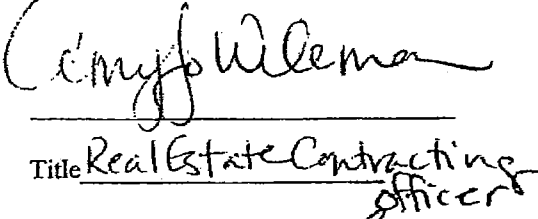 Wileman
Title Real Estate Contracting
officer